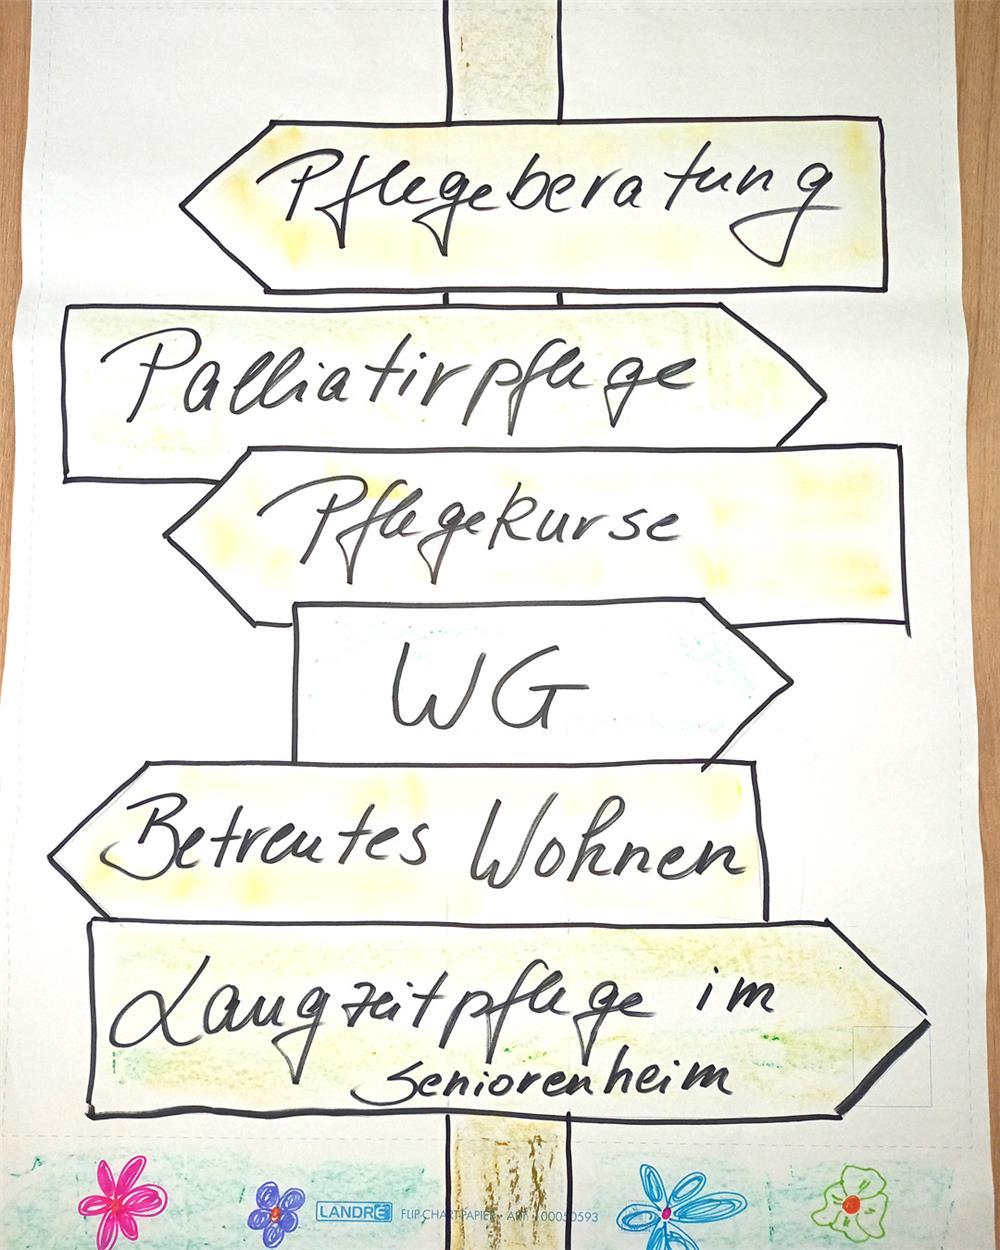 Pflegeberatung
Palliativpflege
Pflegekurse
WG
Betreutes Wohnen
Langzeitpflege im
Seniorenheim
LANDRÉ FLIP-CHART-PAPIER · Art. 100050593